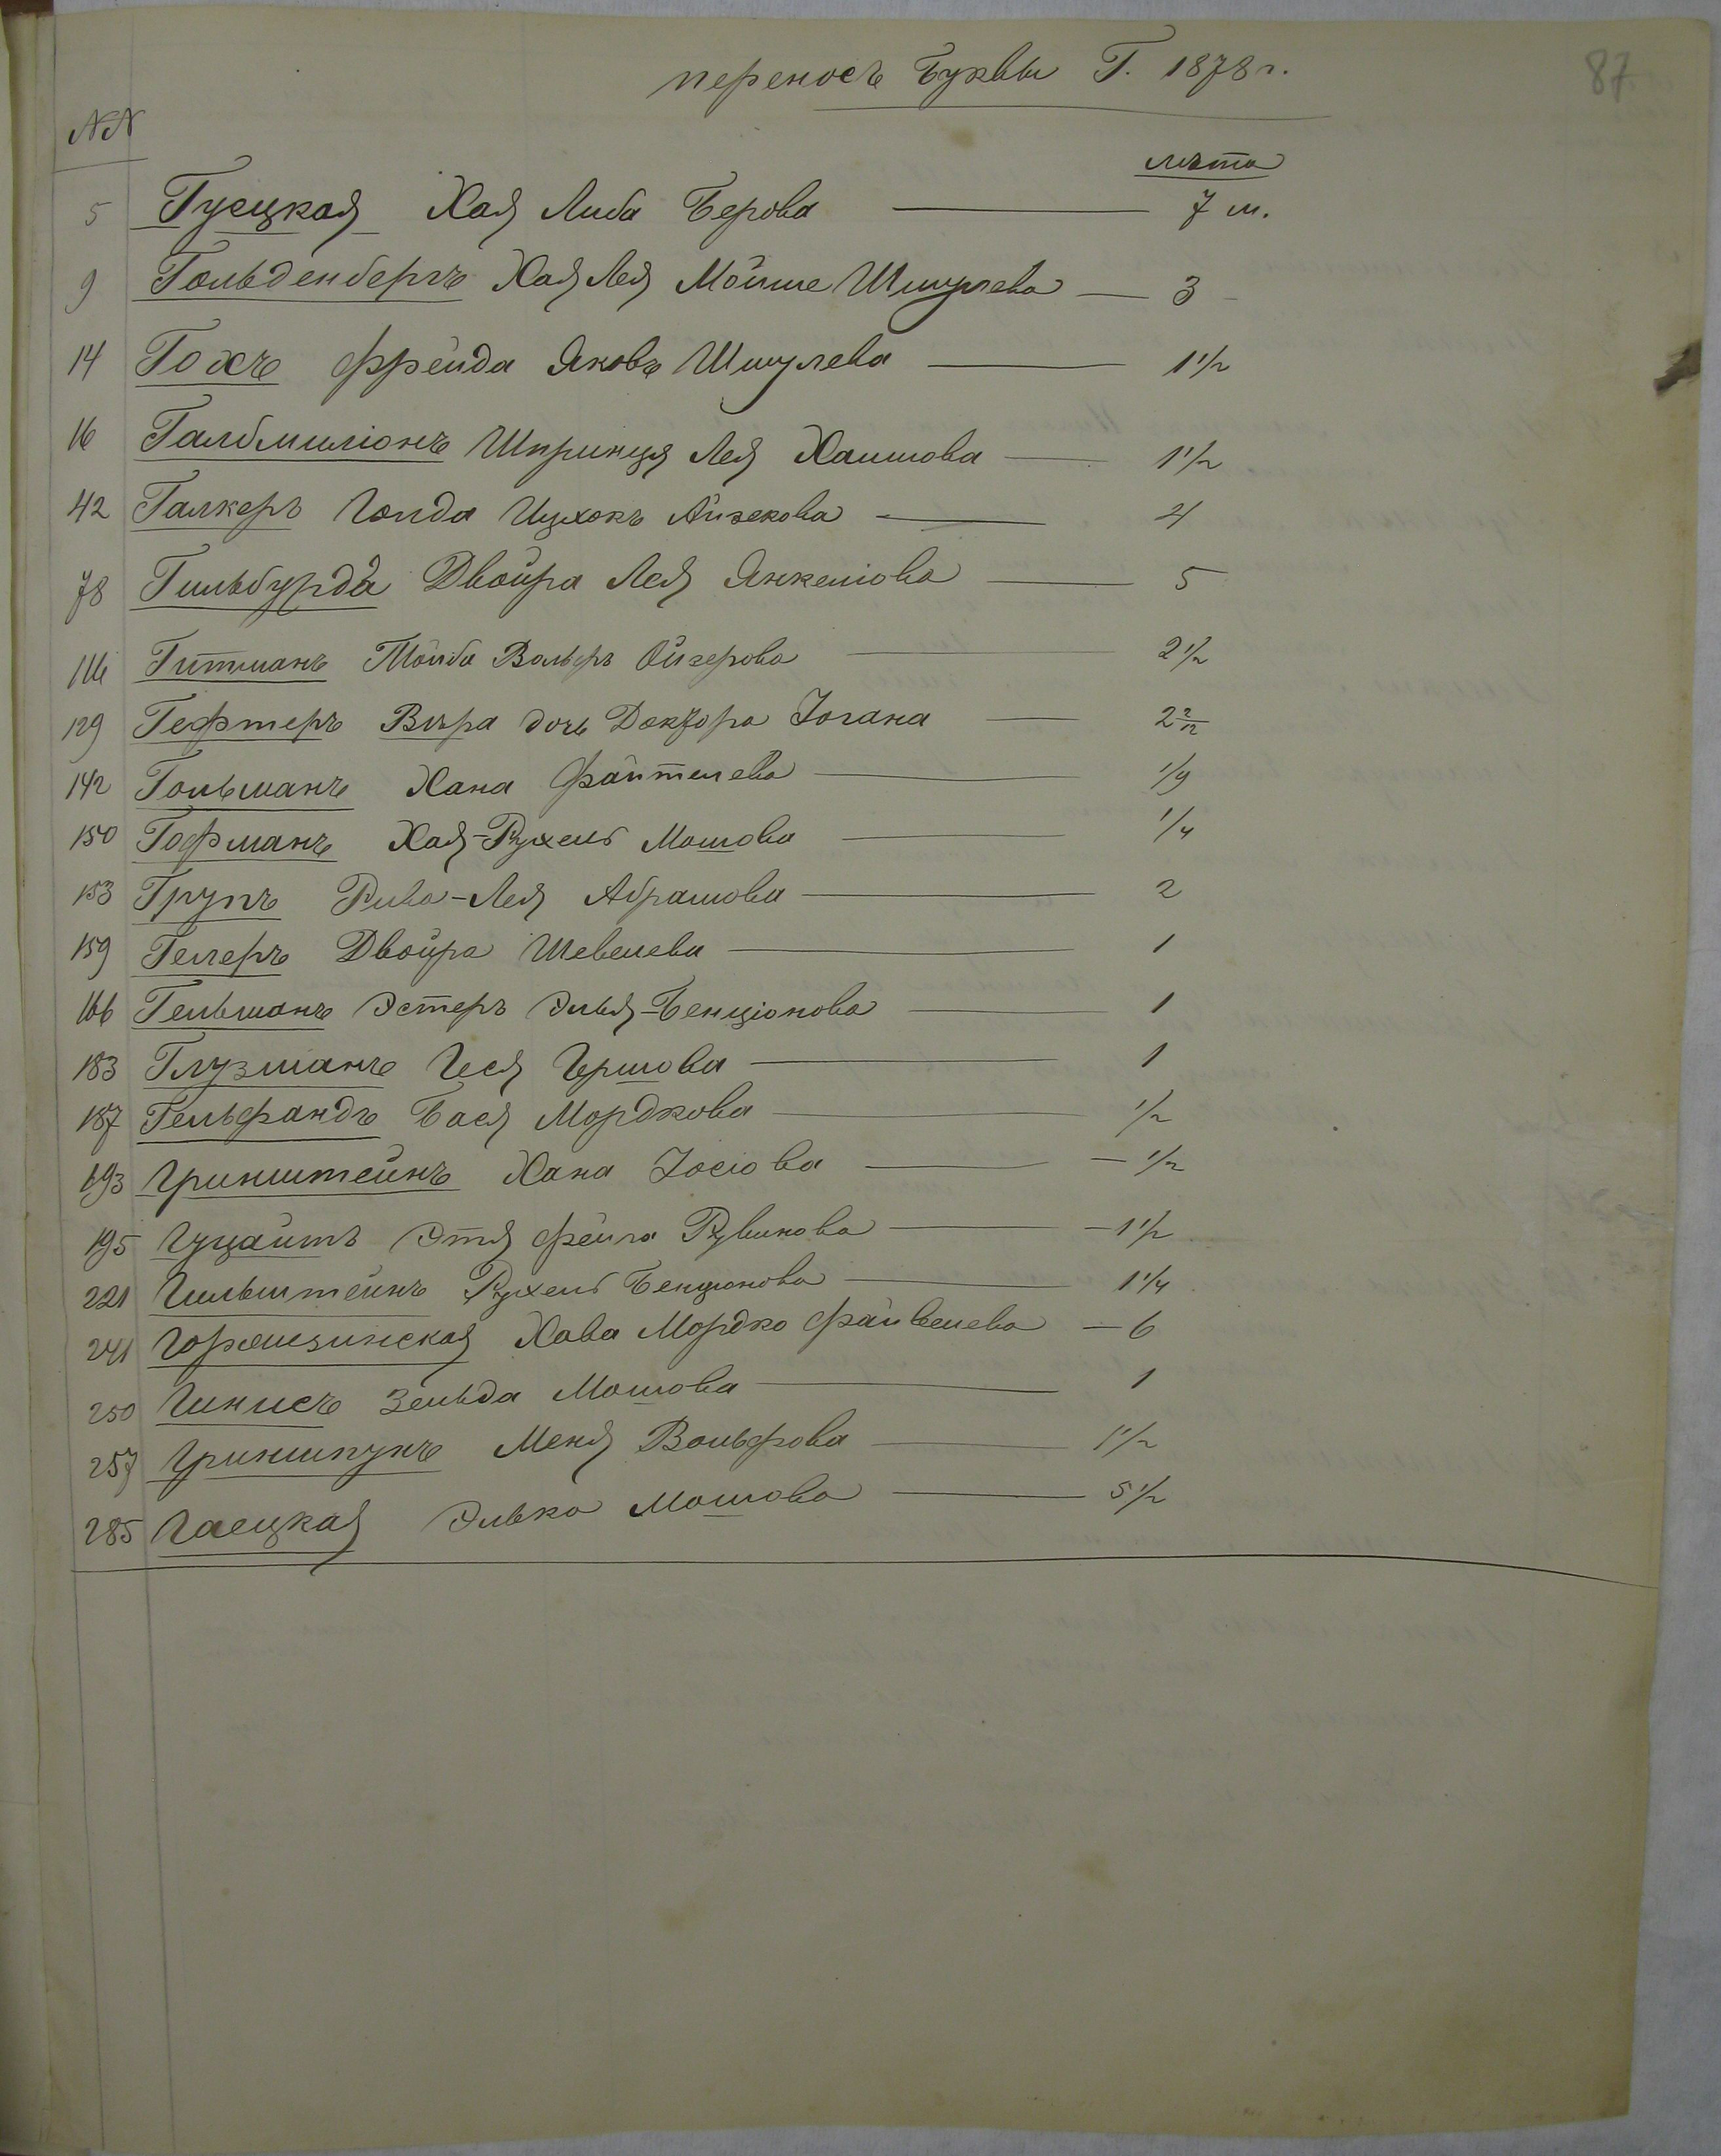 переносъ Буквы Г. 1878 г.
87
NN
лѣта
5 Гуецкая Хая Либа Берова — 7 м.
9 Гольденбергъ Хая Лея Мойше Шмулева — 3
14 Гохъ Фрейда Яковъ Шмулева — 1 1/2
16 Галбмилионъ Шпринця Лея Хаимова — 1 1/2
42 Галкеръ Голда Ицхокъ Айзекова — 4
78 Гильбурда Двойра Лея Янкелiова — 5
116 Гитманъ Тойба Вольфъ Ойзерова — 2 1/2
129 Гефтеръ Вѣра дочь Доктора Iогана — 2 2/12
142 Гольманъ Хана Файтелева — 1/9
150 Гофманъ Хая-Рухель Мошова — 1/4
153 Групъ Рива-Лея Абрамова — 2
159 Гелеръ Двойра Шевелева — 1
166 Гельманъ Эстеръ Элья-Бенцiонова — 1
183 Глузманъ Геся Гершова — 1
187 Гельфандъ Бася Мордкова — 1/2
193 Гринштейнъ Хана Iосiова — 1/2
195 Гуцаитъ Этя Фейга Рувинова — 1 1/2
221 Гильштейнъ Рухель Бенционова — 1 1/4
241 Хава Мордко Файвелева — 6
250 Гинисъ Зельда Мошова — 1
257 Гриншпунъ Меня Вольфова — 1 1/2
285 Гаецкая Элька Мошова — 5 1/2